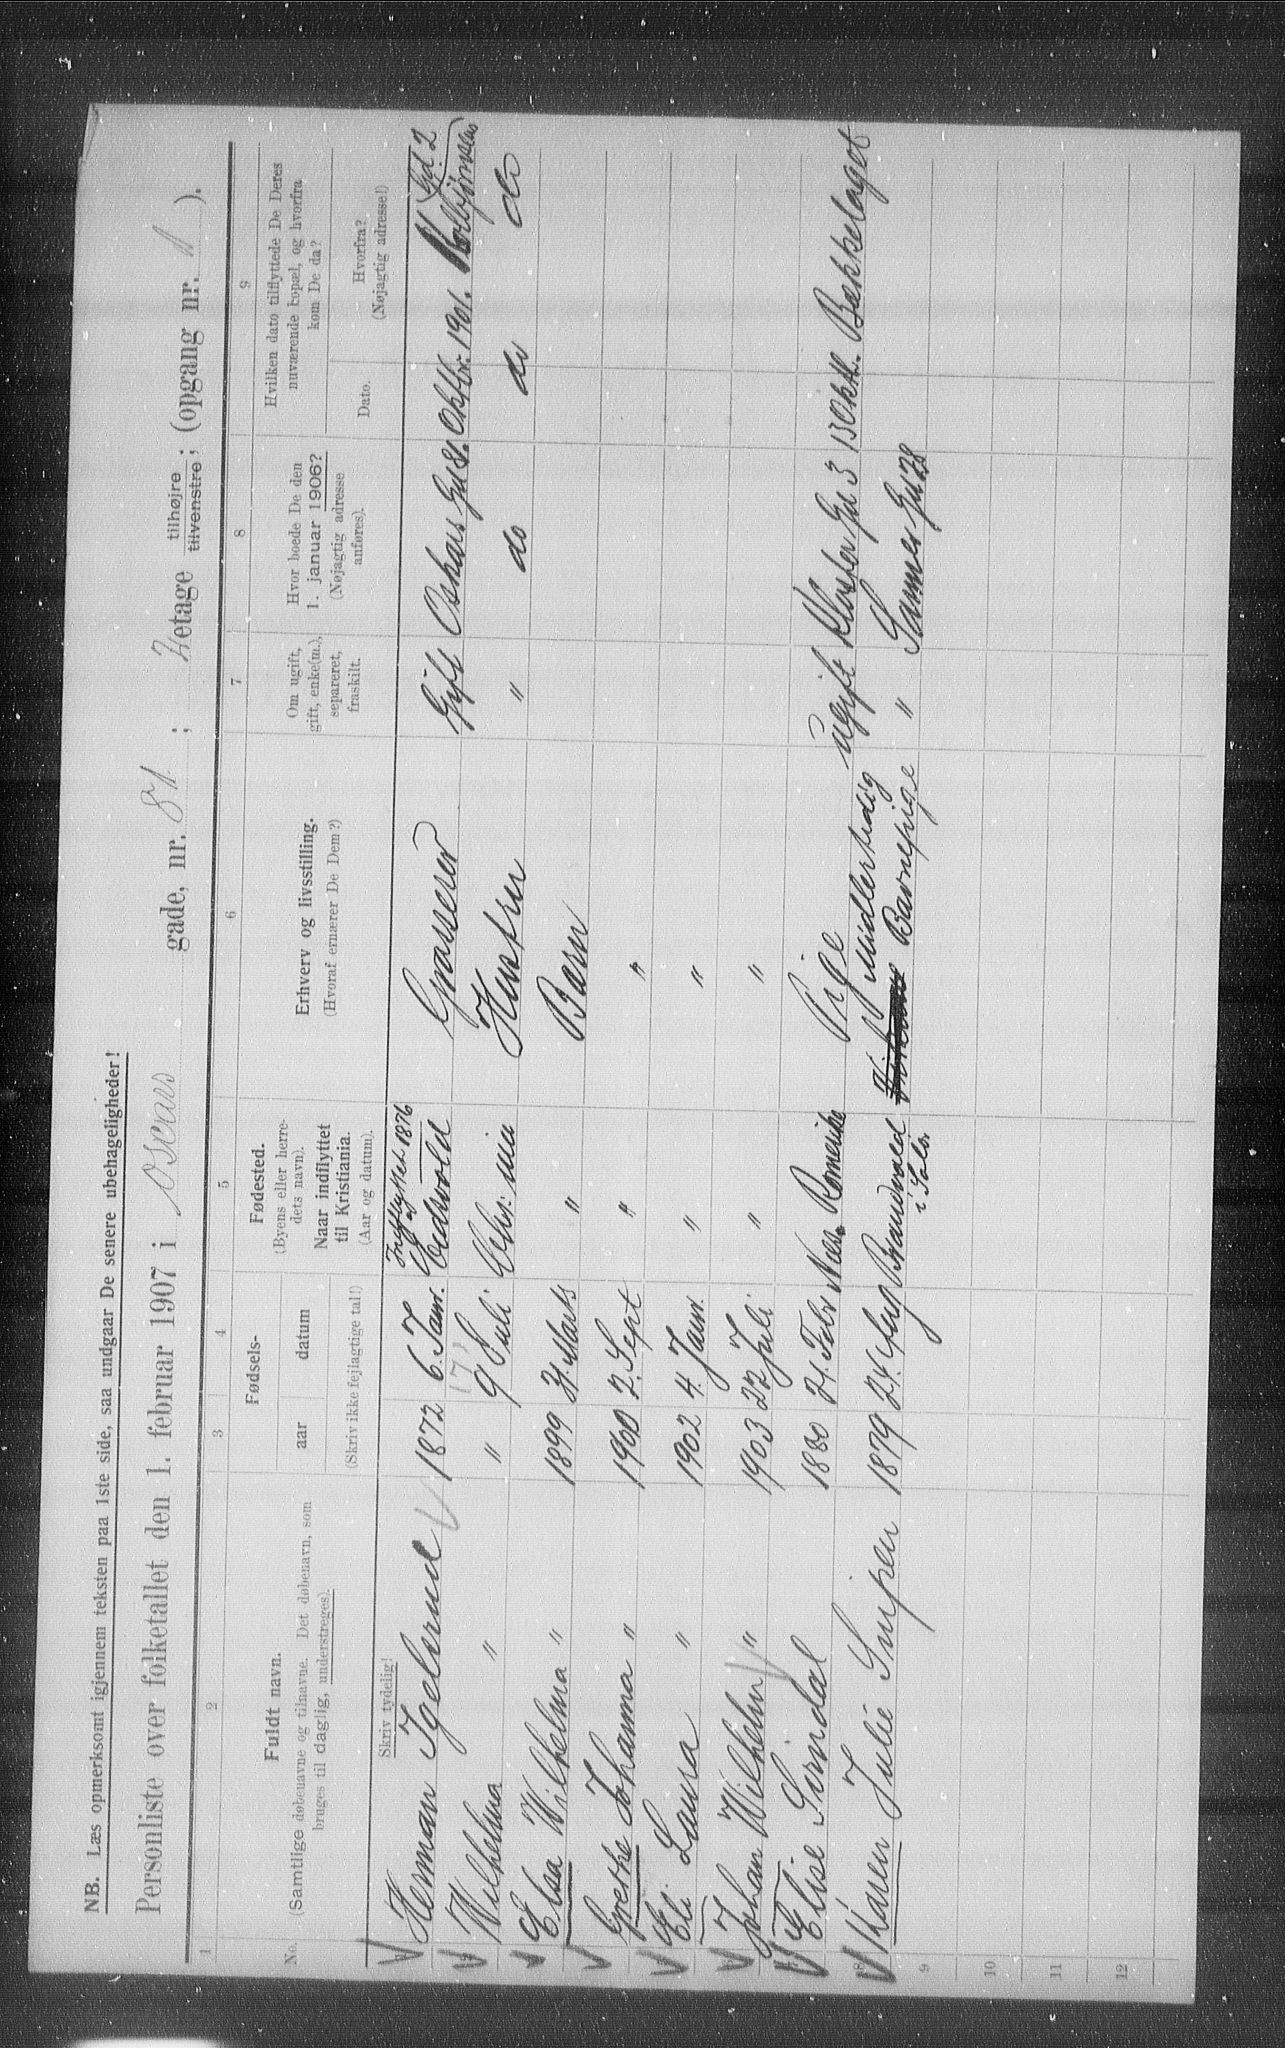 NB. Læs opmerksomt igjennem teksten paa 1ste side, saa undgaar De senere ubehageligheder!
Personliste over folketallet den 1. februar 1907 i Oscars gade, nr. 81 ; 2 etage tilhøjre tilvenstre; (opgang nr. ).
1 2 3 4 5 6 7 8 9
No.
Fuldt navn.
(Samtlige døbenavne og tilnavne. Det døbenavn, som
bruges til daglig, understreges).
Skriv tydelig!
Fødsels-
aar datum
(Skriv ikke fejlagtige tal!)
Fødested.
(Byens eller herre-
dets navn).
Naar indflyttet
til Kristiania.
(Aar og datum).
Erhverv og livsstilling.
(Hvoraf ernærer De Dem?)
Om ugift,
gift, enke(m.),
separeret,
fraskilt.
Hvor boede De den
1. januar 1906?
(Nøjagtig adresse
anføres).
Hvilken dato tilflyttede De Deres
nuværende bopæl, og hvorfra
kom De da?
Dato.
Hvorfra?
(Nøjagtig adresse!)
Herman Igelsrud 1872 6. Janr. Indflyttet 1876 Eidsvold Grosserer Gift Oskars Gd 81. Oktbr. 1901. Kolbjørnsens Gd. 2
Wilhelma " " 9 Juli Chr:nia Hustru " do do do
Elsa Wilhelma " 1899 31. Marts " Barn
Grethe Johanna " 1900 2. Sept " "
Eli Laura " 1902 4. Janr. " "
Johan Wilhelm " 1903 22 Juli " "
Elise Sørindal 1880 21. Febr Næs. Romerike Pige ugift Kloster Gd 3 15 Okt. Bækkelaget
8 Karen Julie Snipen 1879 24. Aug Brandvold i Solør Midlertidig Barnepige " Sannes Gd 28
9
10
11
12